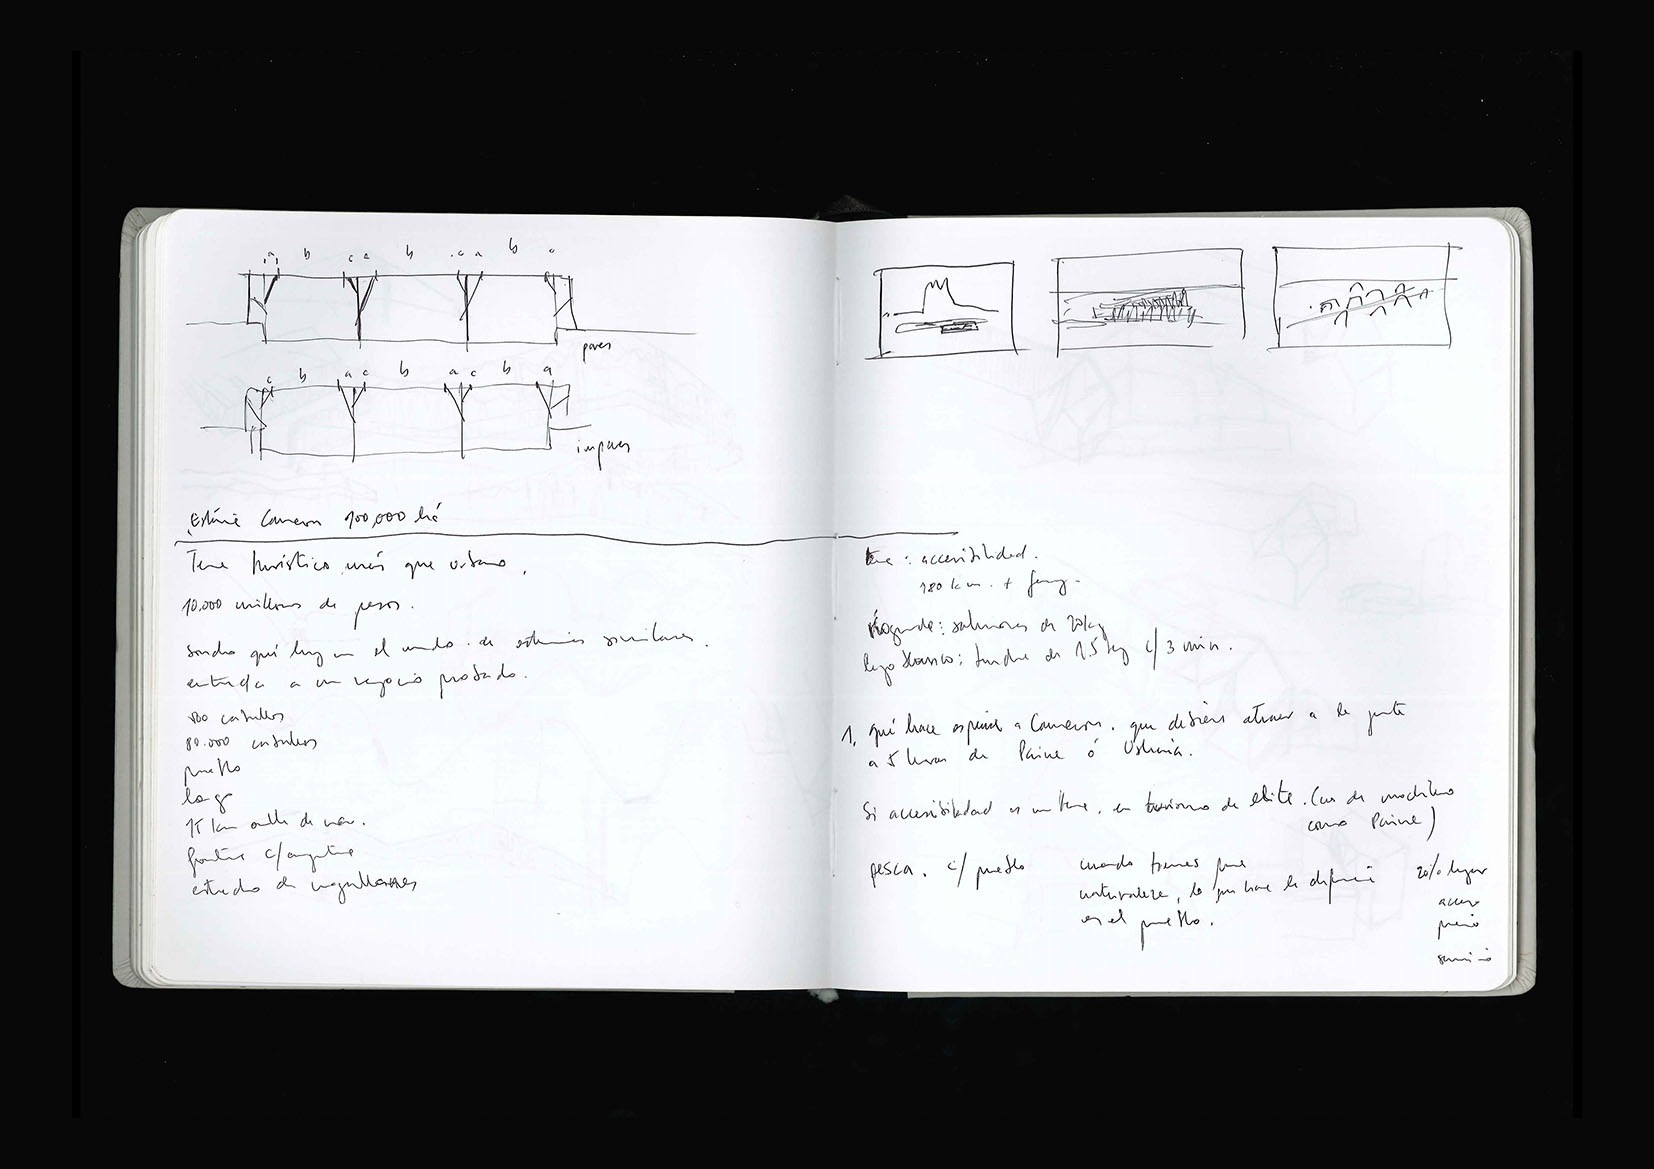 a b c a b c a b c
pares
c b a c b a c b a
impares
Estancia Cameron 100,000 há
Tema turístico más que urbano.
10.000 millones de pesos.
qué hay en el mundo de estancias similares.
entrada a un negocio probado.
800 caballos
80.000 caballos
pueblo
lago
15 km orilla de mar.
frontera c/argentina
estrecho de magallanes
tema: accesibilidad.
180 km. + ferry.
Río grande: salmones de 20kg
lago blanco: trucha de 1,5 kg c/ 3 min.
1. qué hace especial a Cameron. que debiera atraer a la gente
a 5 horas de Paine ó Ushuaia.
Si accesibilidad es un tema. es turismo de elite. (no de mochilero
como Paine)
pesca. c/ pueblo
cuando tienes pura
naturaleza, lo que hace la diferencia
es el pueblo.
20% lugar
acceso
precio
servicio